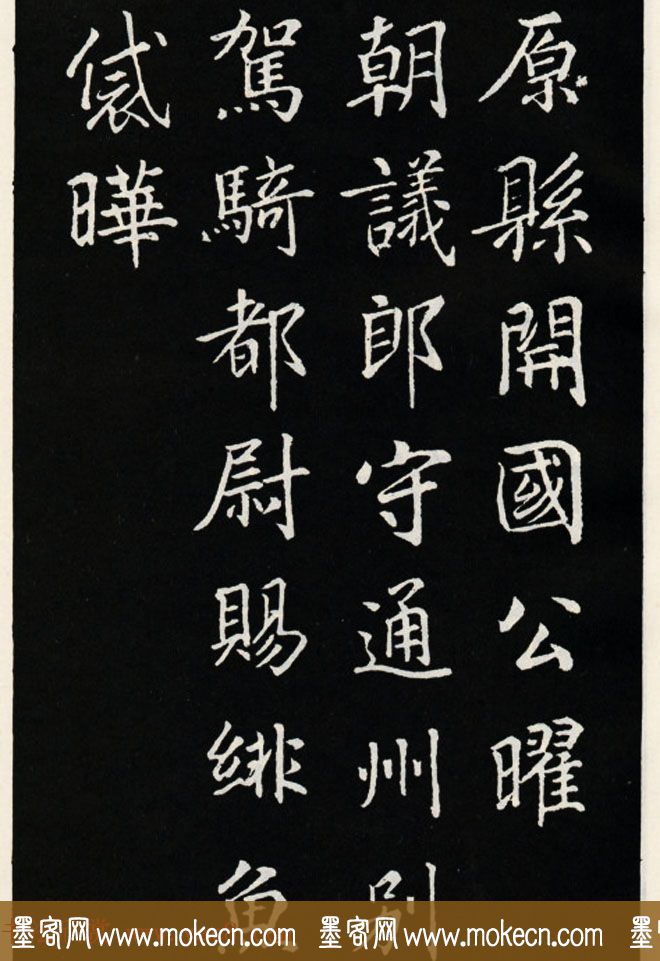 原縣開國公曜
朝議郎守通州別
駕騎都尉賜緋魚
袋曄
墨客网 www.mokecn.com 墨客网 www.mokecn.com 墨客网